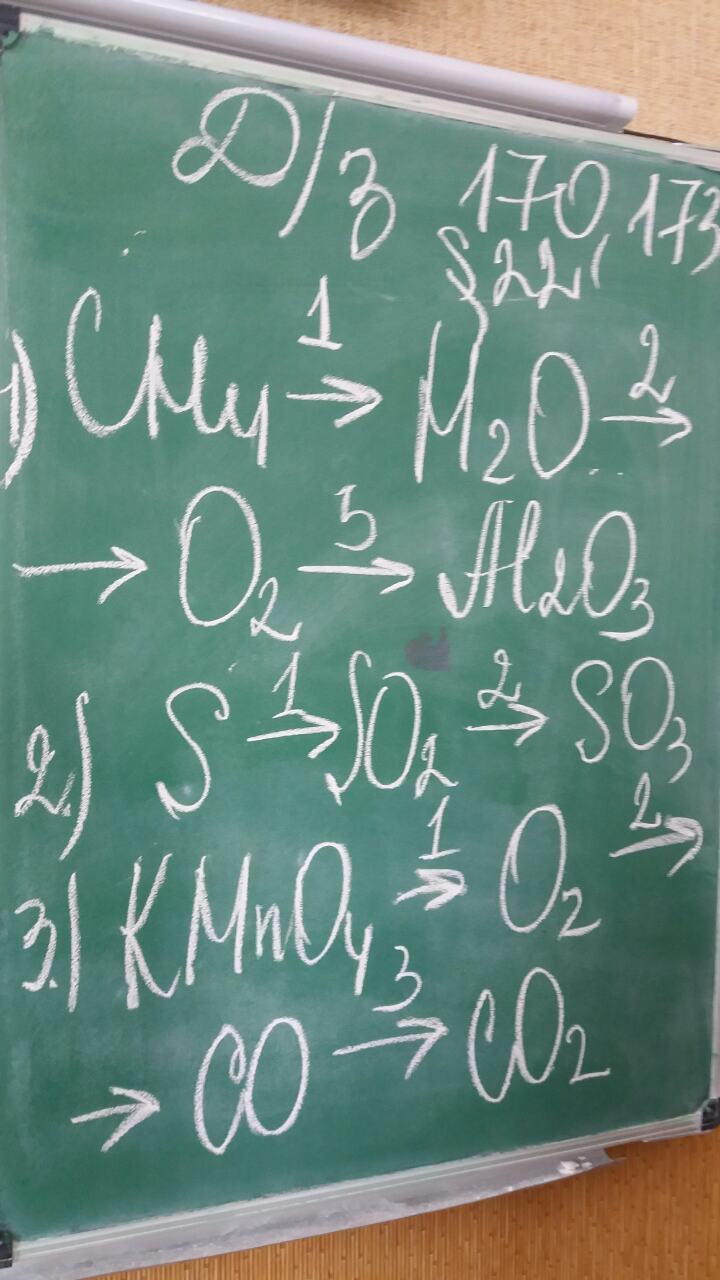 Д/з 170 173
§ 22
1) CH₄ →¹ H₂O →²
→ O₂ →⁵ Al₂O₃
2) S →¹ SO₂ →² SO₃
3) KMnO₄ →¹ O₂ →²
→ CO →³ CO₂